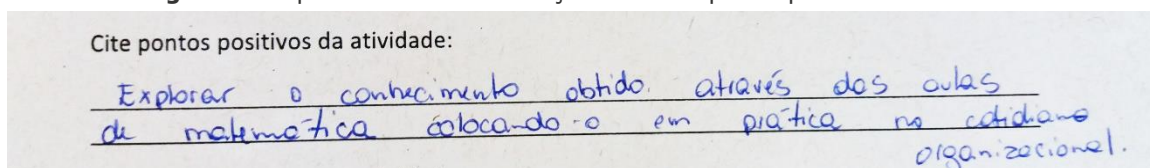 Cite pontos positivos da atividade:
Explorar o conhecimento obtido através das aulas
de matemática colocando-o em prática no cotidiano
organizacional.